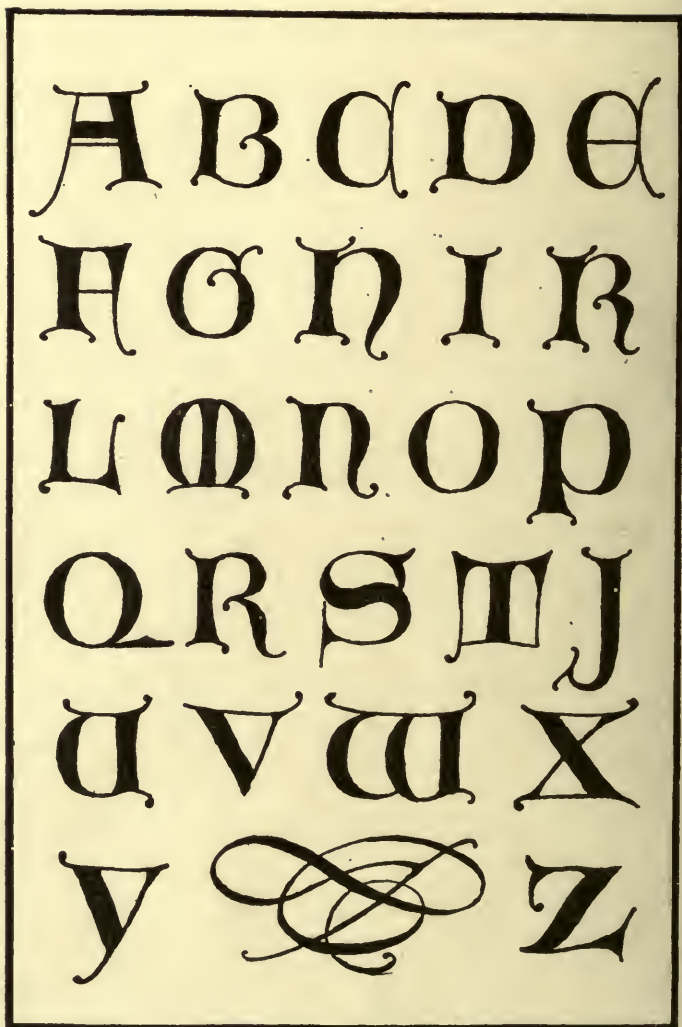 A B C D E
F G H I K
L M N O P
Q R S T J
U V W X
Y Z